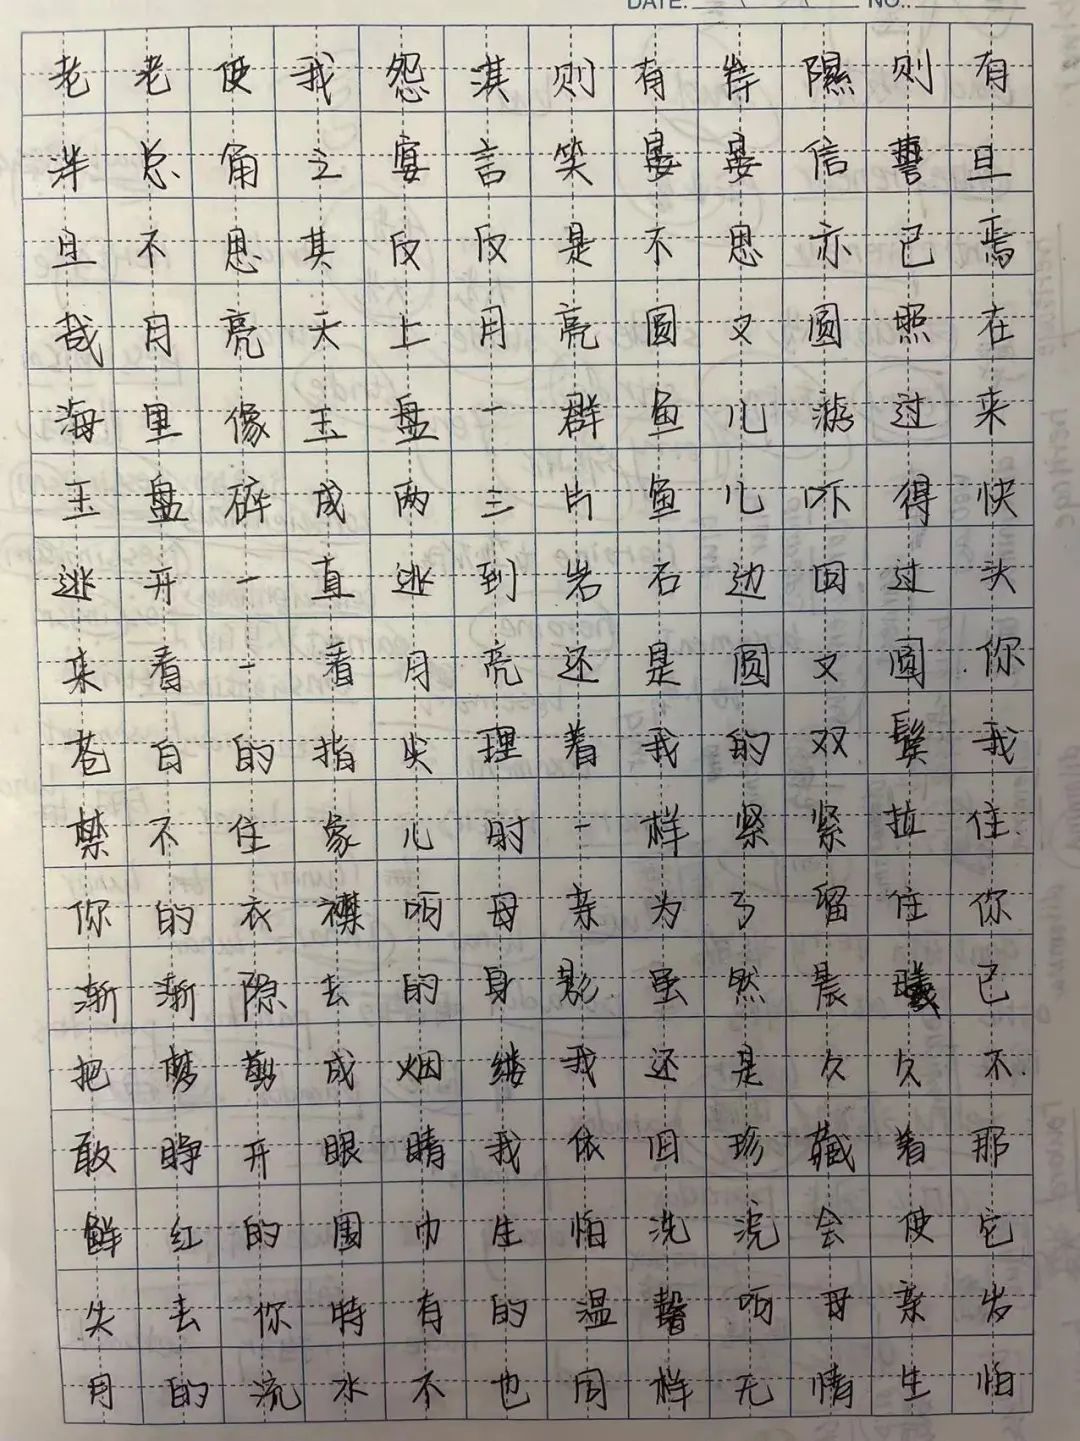 DATE: NO.:
老老使我怨淇则有岸隰则有
泮总角之宴言笑晏晏信誓旦
旦不思其反反是不思亦已焉
哉月亮天上月亮圆又圆照在
海里像玉盘一群鱼儿游过来
玉盘碎成两三片鱼儿吓得快
逃开一直逃到岩石边回过头
来看一看月亮还是圆又圆你
苍白的指尖理着我的双鬓我
禁不住象儿时一样紧紧拉住
你的衣襟呵母亲为了留住你
渐渐隐去的身影虽然晨曦已
把梦剪成烟缕我还是久久不
敢睁开眼睛我依旧珍藏着那
鲜红的围巾生怕洗浣会使它
失去你特有的温馨呵母亲岁
月的流水不也同样无情生怕